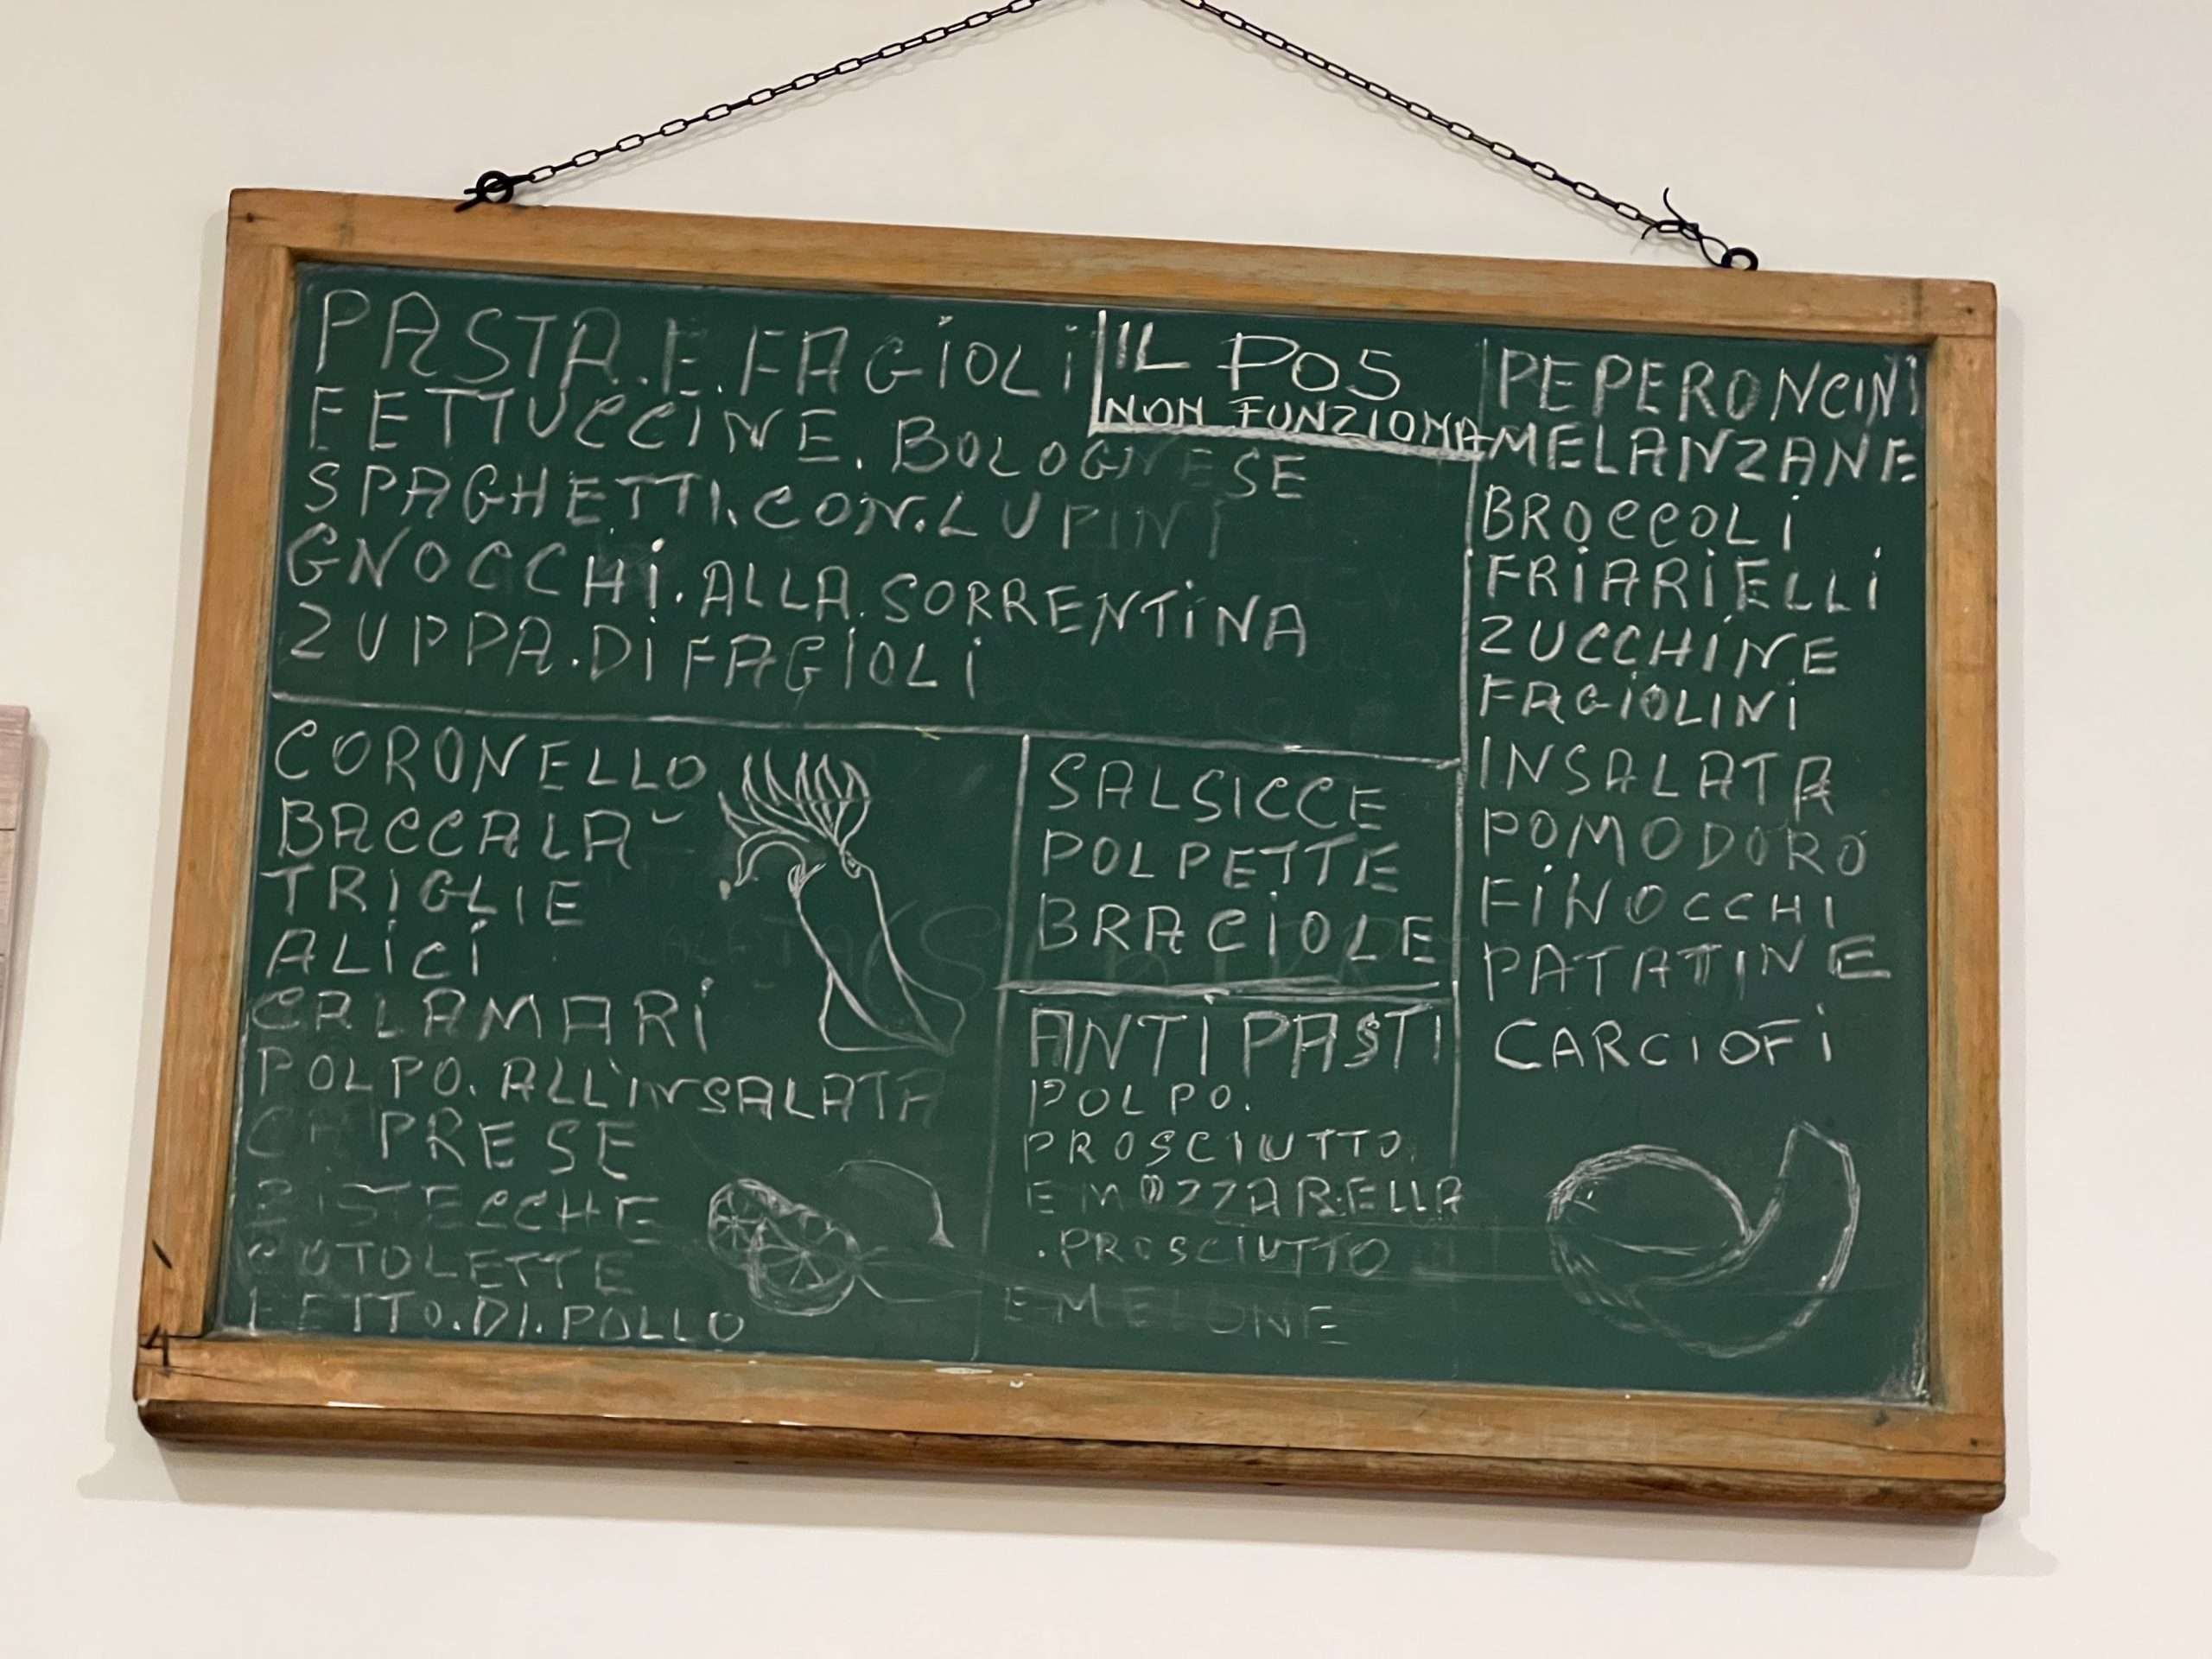 PASTA.E.FAGIOLI
FETTUCCINE.BOLOGNESE
SPAGHETTI.CON.LUPINI
GNOCCHI.ALLA.SORRENTINA
ZUPPA.DI FAGIOLI
IL POS
NON FUNZIONA
PEPERONCINI
MELANZANE
BROCCOLI
FRIARIELLI
ZUCCHINE
FAGIOLINI
INSALATA
POMODORO
FINOCCHI
PATATINE
CARCIOFI
CORONELLO
BACCALA`
TRIGLIE
ALICI
CALAMARI
POLPO.ALL'INSALATA
CAPRESE
BISTECCHE
COTOLETTE
FETTO.DI.POLLO
SALSICCE
POLPETTE
BRACIOLE
ANTIPASTI
POLPO.
PROSCIUTTO
E MOZZARELLA
.PROSCIUTTO
E MELONE